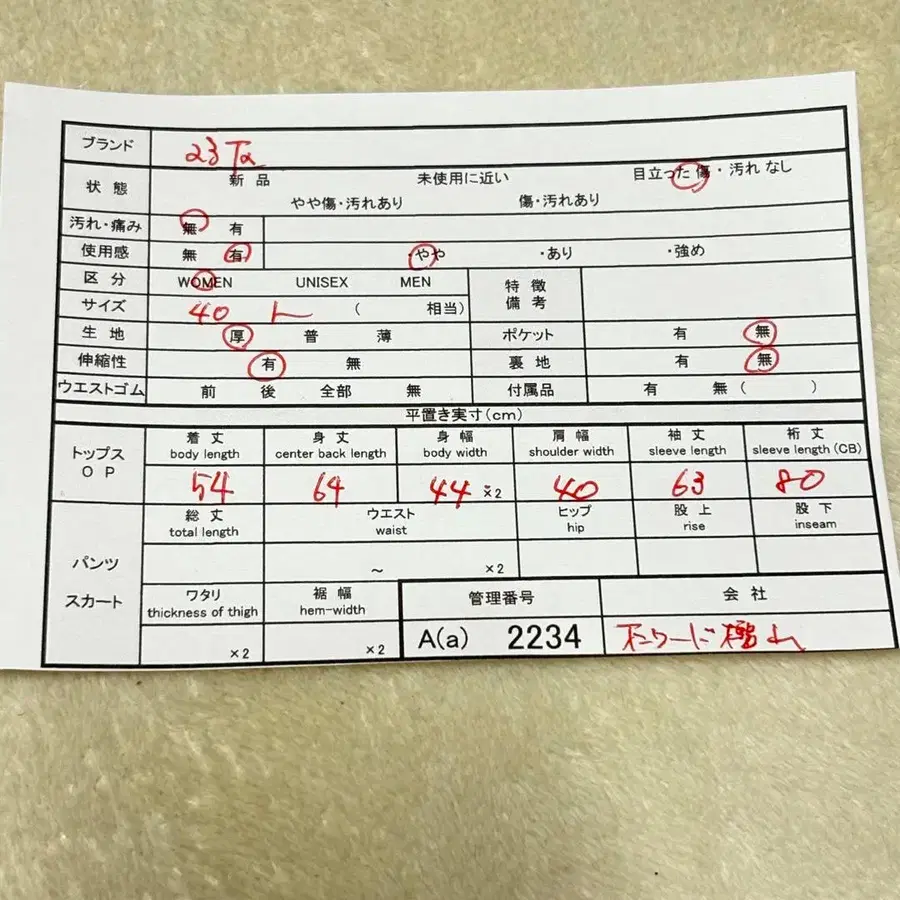 ブランド 23区
新品 未使用に近い 目立った傷・汚れなし
状態
やや傷・汚れあり 傷・汚れあり
汚れ・痛み 無 有
使用感 無 有 ・やや ・あり ・強め
区分 WOMEN UNISEX MEN 特徴
備考
サイズ 40 L ( 相当)
生地 厚 普 薄 ポケット 有 無
伸縮性 有 無 裏地 有 無
ウエストゴム 前 後 全部 無 付属品 有 無 ( )
平置き実寸(cm)
トップス
OP
着丈 身丈 身幅 肩幅 袖丈 裄丈
body length center back length body width shoulder width sleeve length sleeve length (CB)
54 64 44 ×2 40 63 80
パンツ
スカート
総丈 ウエスト ヒップ 股上 股下
total length waist hip rise inseam
~ ×2
ワタリ 裾幅 管理番号 会社
thickness of thigh hem-width
×2 ×2 A(a) 2234 オンワード樫山